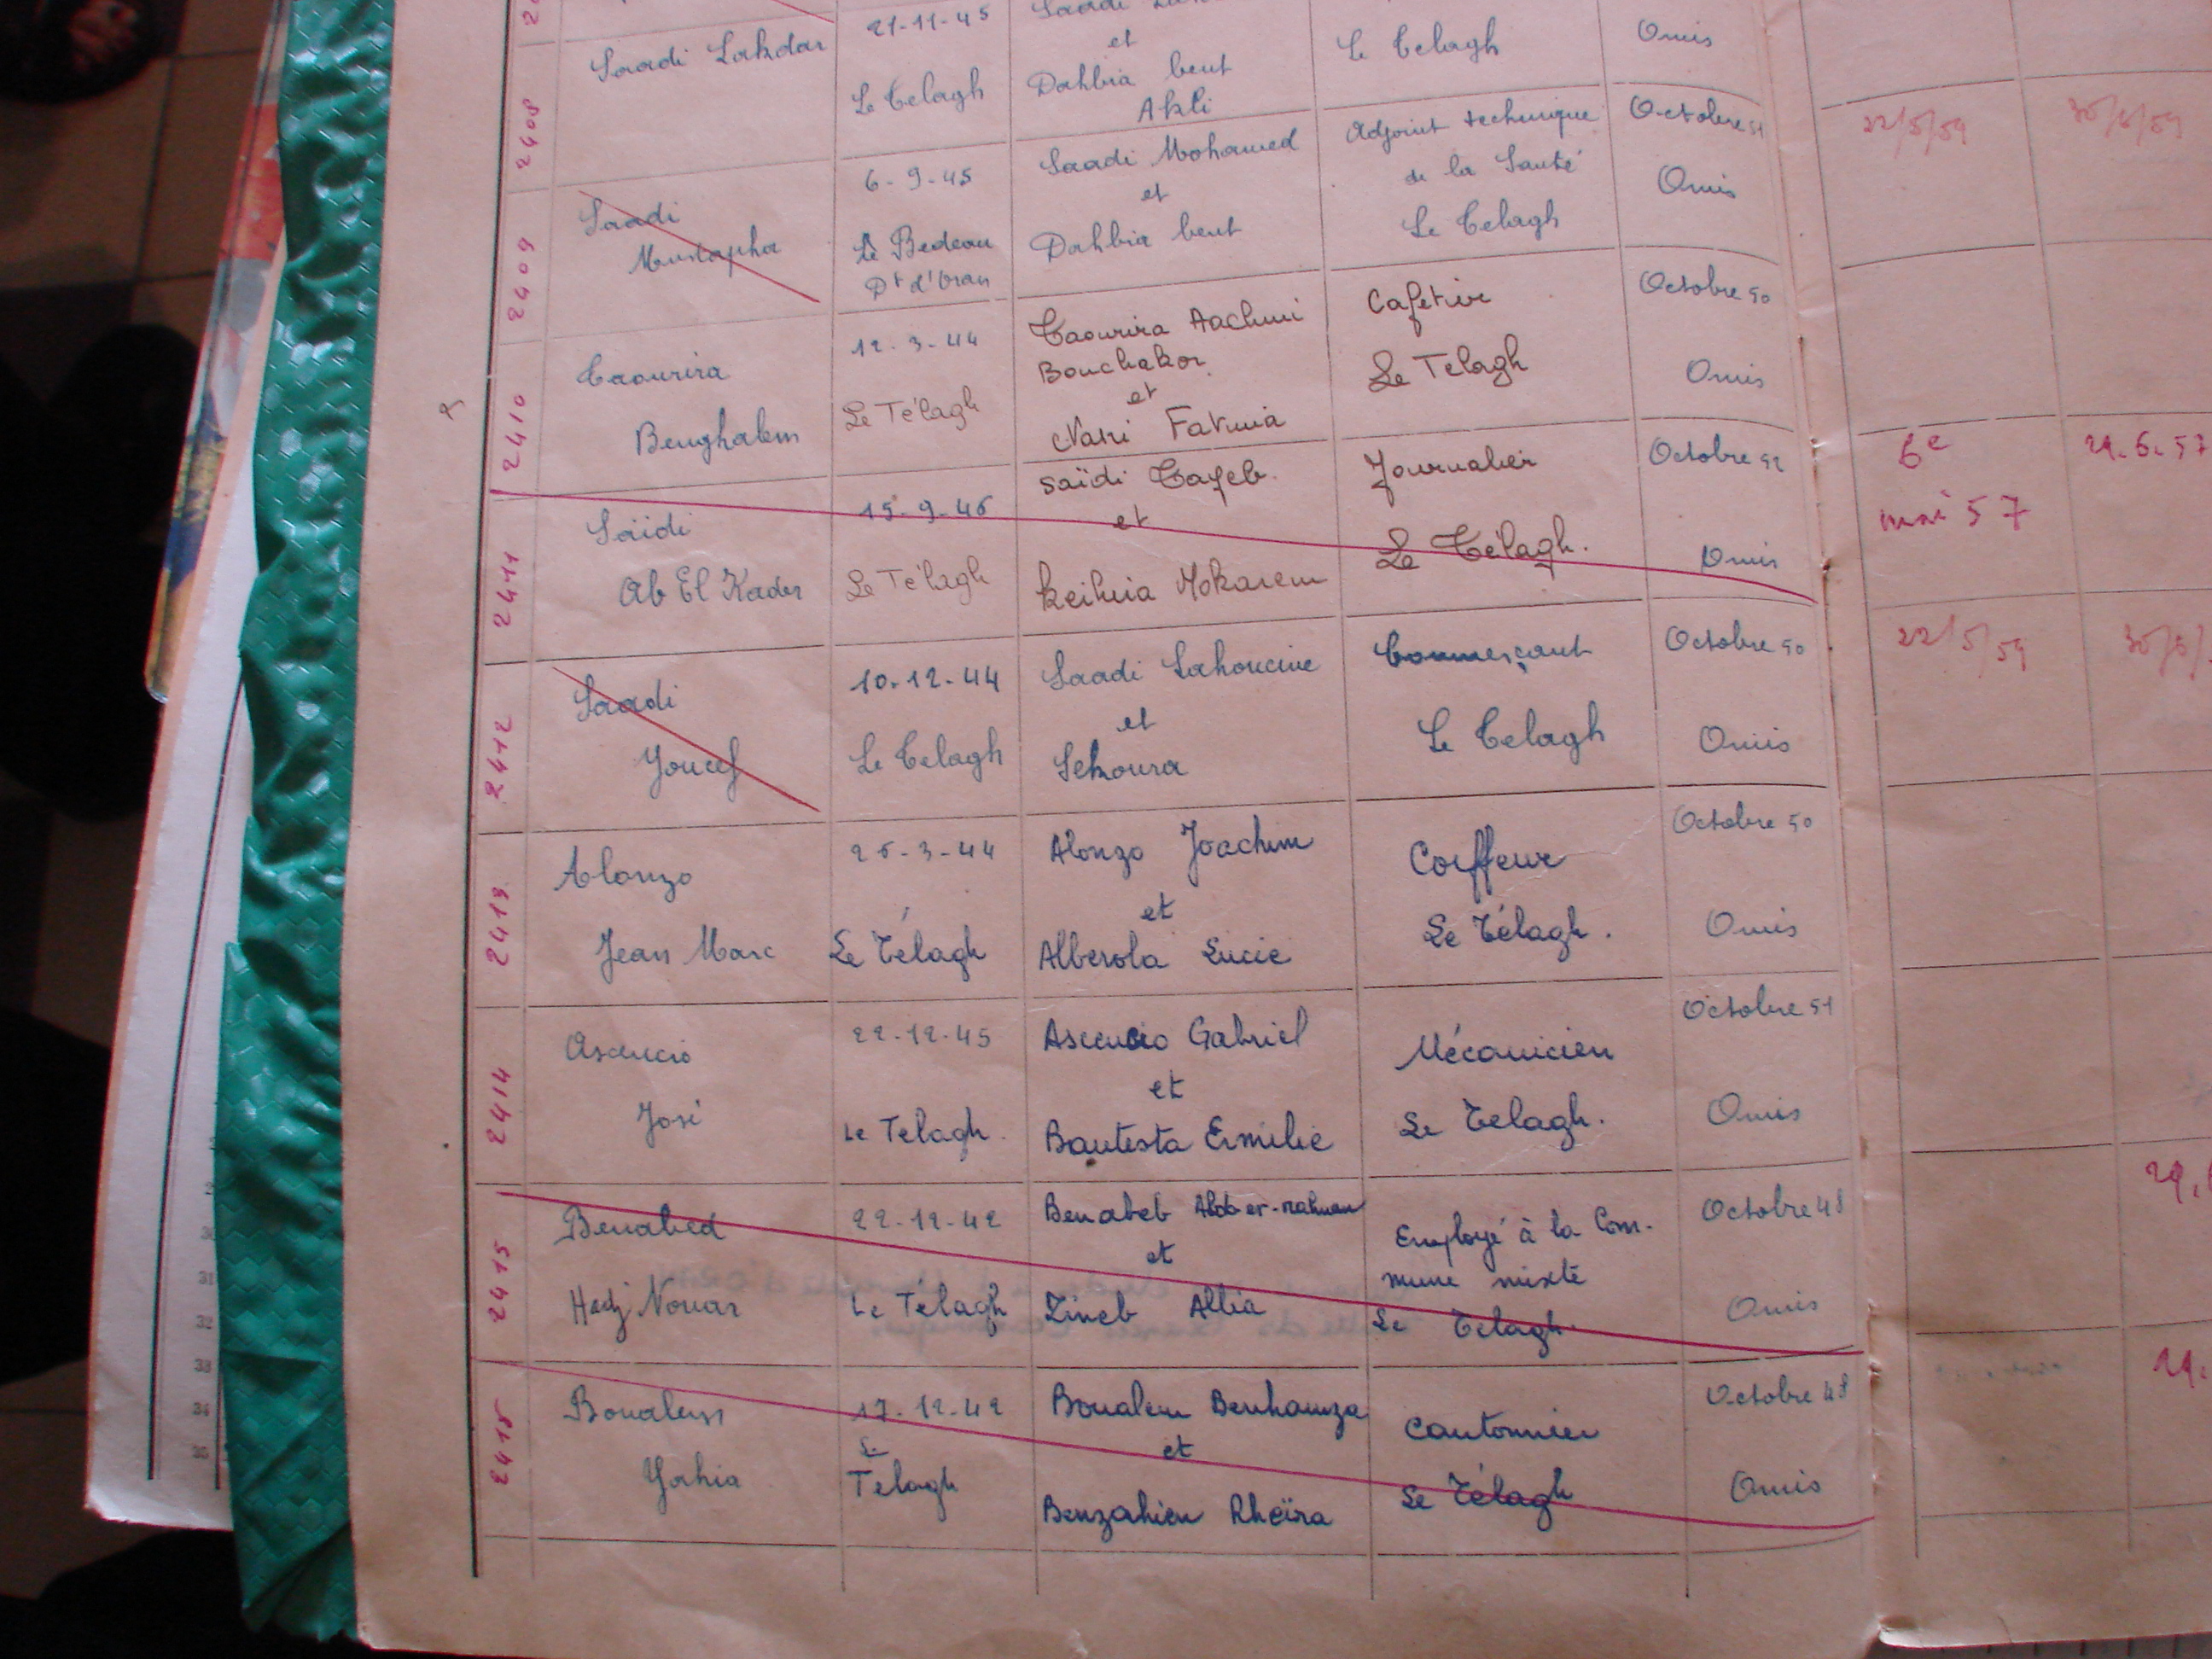 2408
Saadi Lakdar
21-11-45
Le Telagh
Saadi
et
Dahbia bent
Akli
Le Telagh
Omis
2409
Saadi
Mustapha
6-9-45
Le Bedeau
Dt d'Oran
Saadi Mohamed
et
Dahbia bent
Adjoint technique
de la Santé
Le Telagh
Octobre 51
Omis
22/5/59
30/6/59
2410
Taourira
Benghalem
12-3-44
Le Télagh
Taourira Aachmi
Bouchakor
et
Nasri Fatmia
Cafetier
Le Telagh
Octobre 50
Omis
2411
Saïdi
Ab El Kader
15-9-46
Le Télagh
Saïdi Tayeb
et
Keihia Mokarem
Journalier
Le Télagh.
Octobre 52
Omis
6e
mai 57
29.6.57
2412
Saadi
Youcef
10-12-44
Le Telagh
Saadi Lahoucine
et
Sekoura
Commerçant
Le Telagh
Octobre 50
Omis
22/5/59
30/6/
2413
Alonzo
Jean Marc
26-3-44
Le Télagh
Alonzo Joachim
et
Alberola Lucie
Coiffeur
Le Télagh.
Octobre 50
Omis
2414
Ascencio
José
22-12-45
Le Telagh.
Ascencio Gabriel
et
Bautesta Ermilie
Mécanicien
Le Telagh.
Octobre 51
Omis
2415
Benabed
Hadj Nouar
22-12-42
Le Télagh
Benabeb Abd-er-rahman
et
Zineb Allia
Employé à la Com-
mune mixte
Le Telagh.
Octobre 48
Omis
29.
2416
Boualem
Yahia
17-12-42
Le
Telagh
Boualem Benhamza
et
Benzahien Rheïra
Cantonnier
Le Télagh
Octobre 48
Omis
29.
31
32
33
34
35